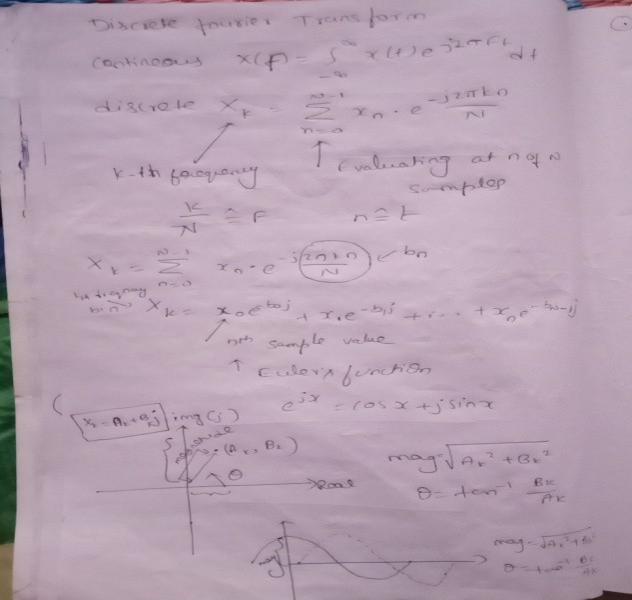 Discrete fourier Transform
continous x(f) = ∫_{-∞}^{∞} x(t) e^{j2πFt} dt
discrete X_k = Σ_{n=0}^{N-1} x_n · e^{-j2πkn/N}
k-th frequency
Evaluating at n of N samples
k/N ≅ F n ≅ t
X_k = Σ_{n=0}^{N-1} x_n · e^{-j 2πkn/N} ← b_n
X_k = x_0 e^{-b_0 j} + x_1 e^{-b_1 j} + ... + x_n e^{-b_{N-1} j}
nth sample value
↑ Eulers function
e^{jx} = cos x + j sin x
X_k = A_k + B_k j img(j)
(A_k, B_k)
mag = √(A_k² + B_k²)
θ Real
θ = tan⁻¹ B_k/A_k
mag
mag = √(A_k² + B_k²)
θ = tan⁻¹ B_k/A_k